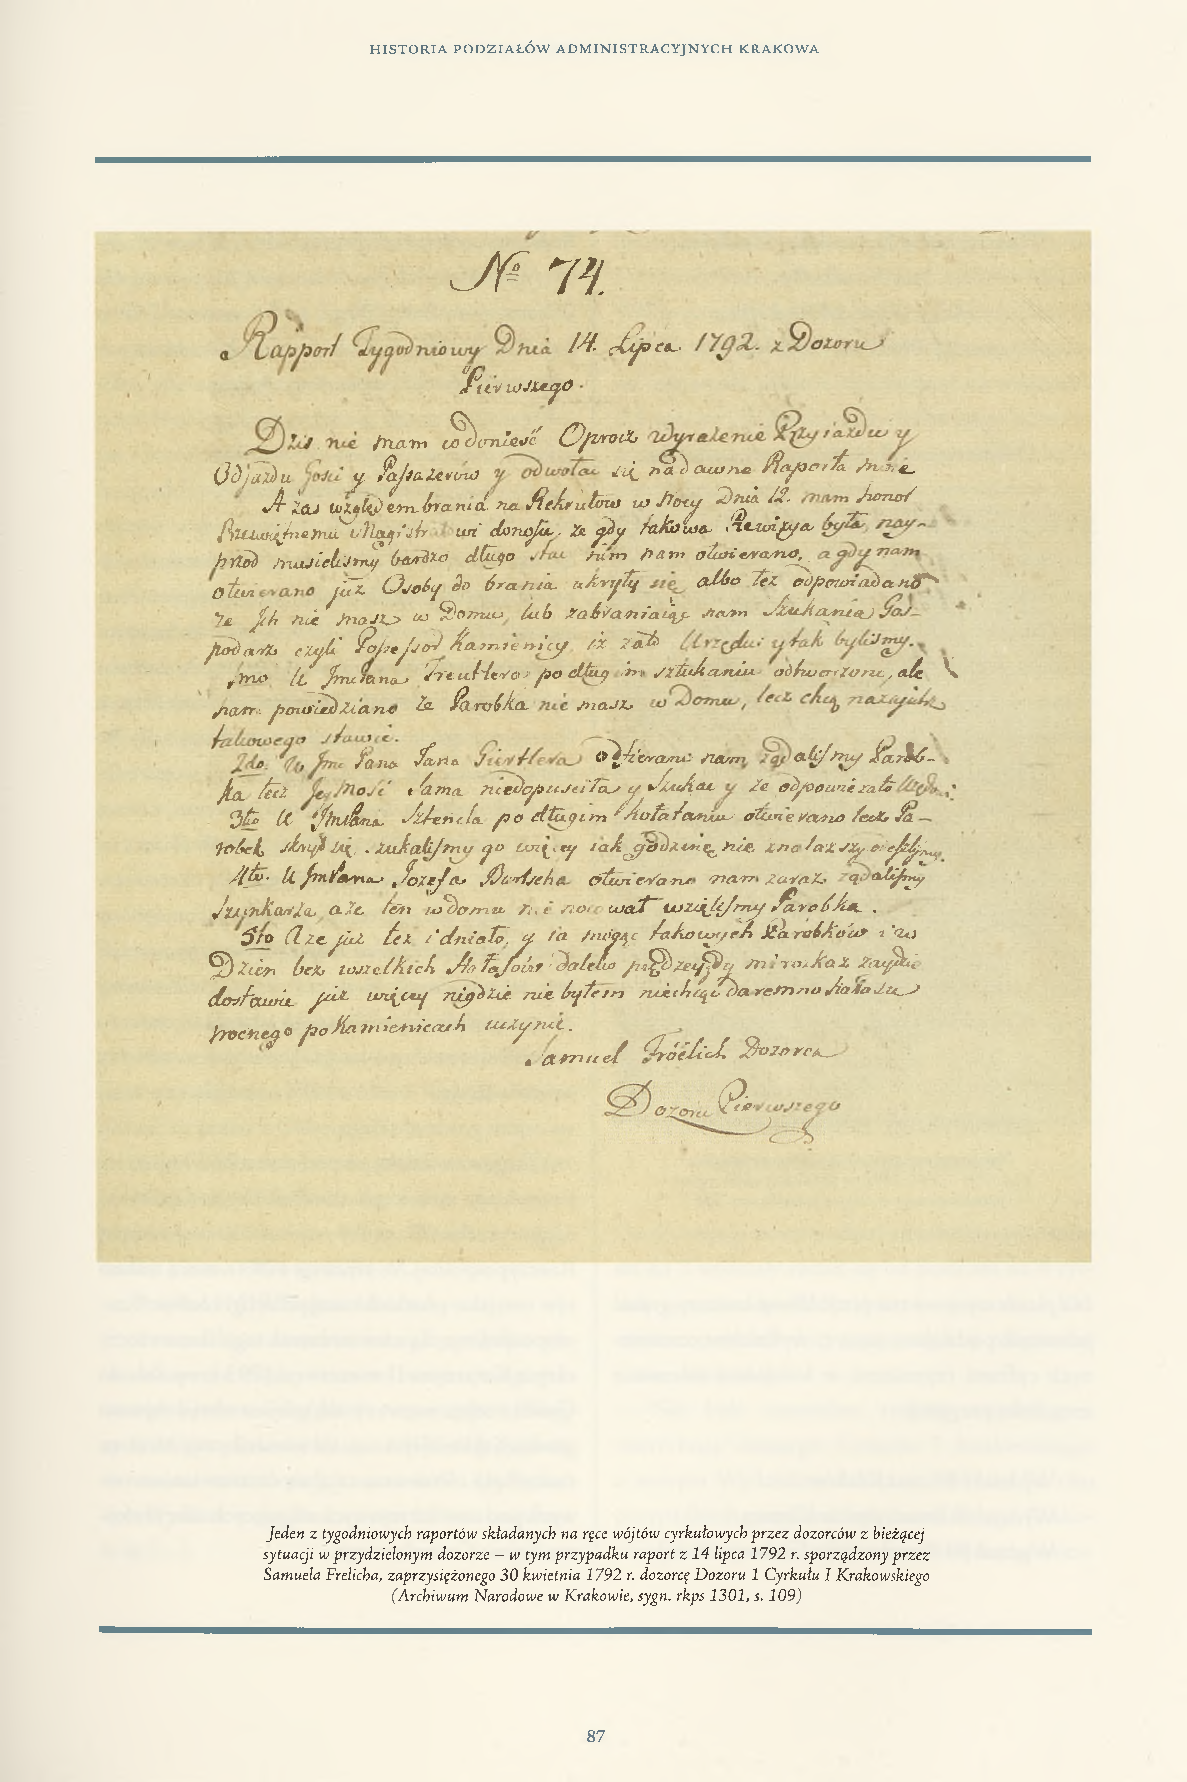 HISTORIA PODZIAŁÓW ADMINISTRACYJNYCH KRAKOWA
No 74.
Rapport Tygodniowy Dnia 14. Lipca. 1792. z Dozoru
Pierwszego.
Dziś nie mam co donieść Oprocz wyrażenie Przyiazdu y
Odjazdu Gości y Passażerów y odwołać się na dawne Raporta moie
A zas względem brania na Rekrutow w Nocy Dnia 12. mam honor
Prześwietnemu Magistratowi donoszę, że gdy takowa Rewizya była, nay-
przod musielismy bardzo długo stać nim nam otwierano, a gdy nam
otwierano już Osoby do brania ukryły się albo też odpowiadano
że Ich nie masz w Domu, lub zabraniaiąc nam Szukania Gos-
podarz czyli Possessor Kamienicy, iż zato Urzędu y tak bylismy.
1mo U ImcPana Treutlera po długim sztukaniu odtworzono, ale
nam powiedziano że Parobka nie masz w Domu, lecz chcą nazajutrz
takowego stawić.
2do. U Jmc Pana Jana Girtlera otwierano nam, żądalismy Parob-
ka lecz Jejmość Sama niedopusciła y Szukać y że odpowie zato
3tio U JmPana Sztencla po długim kołataniu otwierano lecz Pa-
robek skrył się szukalismy go więcey iak godzinę, nie znalazszy
4to. U JmPana Jozefa Bartscha otwierano nam zaraz żądalismy
Szynkarza, ale ten w domu nie nocował wzięlismy Parobka.
5to A że już też i dniało, y ia mogąc takowych Parobków i w
Dzien bez wszelkich Hałasow daleko prędzey gdy mi rozkaz zaydzie
dostawić już więcey nigdzie nie byłem niechcąc daremno hałasu
nocnego po Kamienicach uczynić.
Samuel Fröelich Dozorca
Dozoru Pierwszego
Jeden z tygodniowych raportów składanych na ręce wójtów cyrkułowych przez dozorców z bieżącej
sytuacji w przydzielonym dozorze – w tym przypadku raport z 14 lipca 1792 r. sporządzony przez
Samuela Frelicha, zaprzysiężonego 30 kwietnia 1792 r. dozorcę Dozoru 1 Cyrkułu I Krakowskiego
(Archiwum Narodowe w Krakowie, sygn. rkps 1301, s. 109)
87